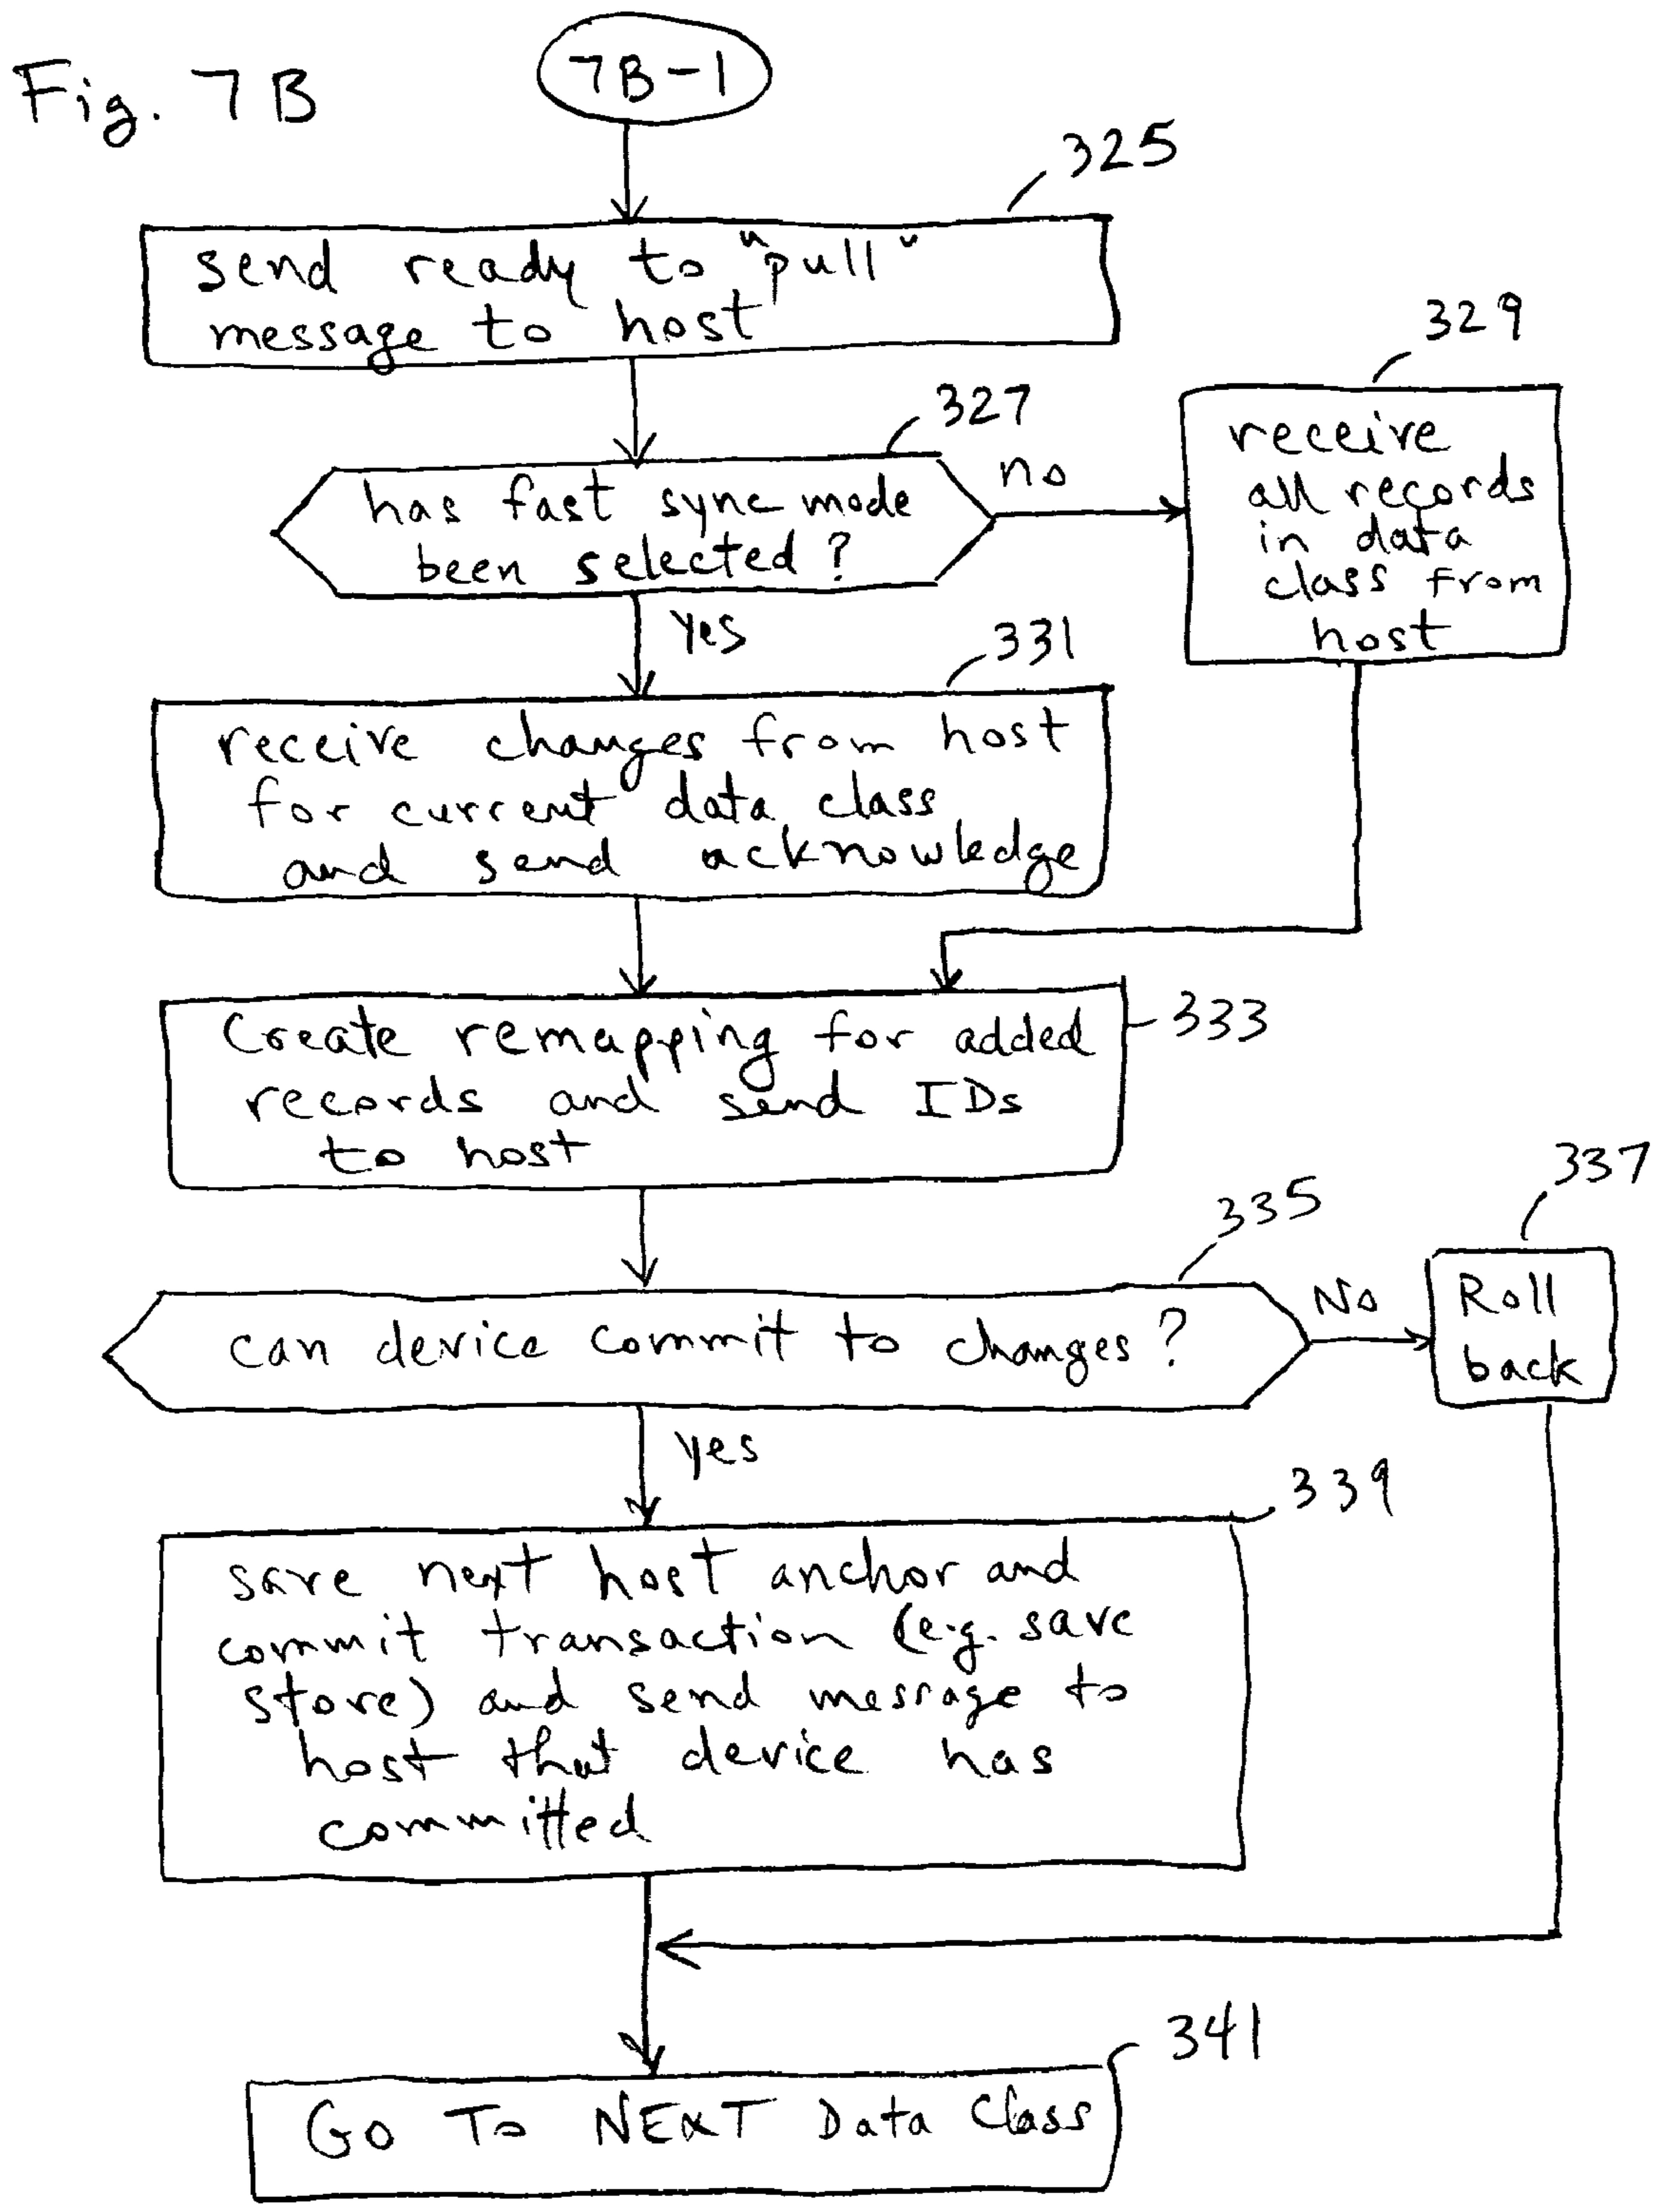 Fig. 7B
7B-1
325
send ready to "pull"
message to host
327
329
has fast sync mode
been selected?
no
receive
all records
in data
class from
host
yes
331
receive changes from host
for current data class
and send acknowledge
Create remapping for added
records and send IDs
to host
333
335
337
can device commit to changes?
No
Roll
back
yes
339
save next host anchor and
commit transaction (e.g. save
store) and send message to
host that device has
committed
341
GO TO NEXT Data Class